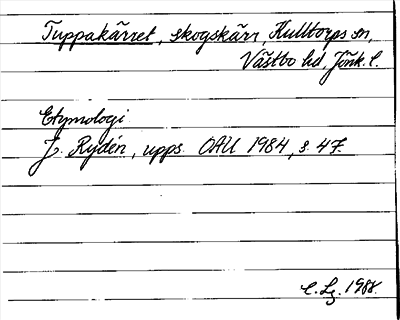 Tuppakärret, skogskärr, Kulltorps sn,
Västbo hd Jönk. l.
Etymologi
J. Rydén, upps. OAU 1984, s. 47.
C. Lg. 1988.